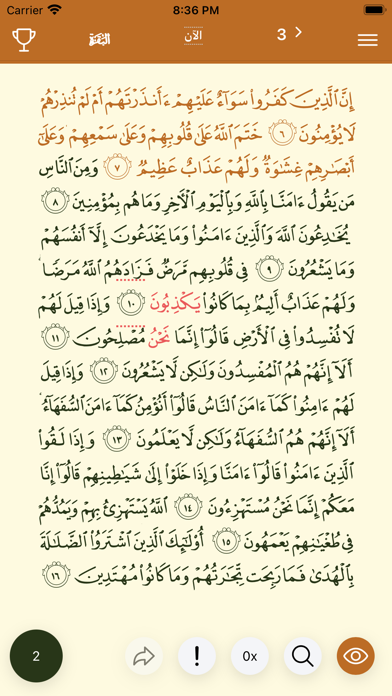 Carrier 8:36 PM
البقرة
الآن
3
إِنَّ ٱلَّذِينَ كَفَرُوا۟ سَوَآءٌ عَلَيْهِمْ ءَأَنذَرْتَهُمْ أَمْ لَمْ تُنذِرْهُمْ
لَا يُؤْمِنُونَ ٦ خَتَمَ ٱللَّهُ عَلَىٰ قُلُوبِهِمْ وَعَلَىٰ سَمْعِهِمْ وَعَلَىٰٓ
أَبْصَٰرِهِمْ غِشَٰوَةٌ وَلَهُمْ عَذَابٌ عَظِيمٌ ٧ وَمِنَ ٱلنَّاسِ
مَن يَقُولُ ءَامَنَّا بِٱللَّهِ وَبِٱلْيَوْمِ ٱلْءَاخِرِ وَمَا هُم بِمُؤْمِنِينَ ٨
يُخَٰدِعُونَ ٱللَّهَ وَٱلَّذِينَ ءَامَنُوا۟ وَمَا يَخْدَعُونَ إِلَّآ أَنفُسَهُمْ
وَمَا يَشْعُرُونَ ٩ فِى قُلُوبِهِم مَّرَضٌ فَزَادَهُمُ ٱللَّهُ مَرَضًا ۖ
وَلَهُمْ عَذَابٌ أَلِيمٌۢ بِمَا كَانُوا۟ يَكْذِبُونَ ١٠ وَإِذَا قِيلَ لَهُمْ
لَا تُفْسِدُوا۟ فِى ٱلْأَرْضِ قَالُوٓا۟ إِنَّمَا نَحْنُ مُصْلِحُونَ ١١
أَلَآ إِنَّهُمْ هُمُ ٱلْمُفْسِدُونَ وَلَٰكِن لَّا يَشْعُرُونَ ١٢ وَإِذَا قِيلَ
لَهُمْ ءَامِنُوا۟ كَمَآ ءَامَنَ ٱلنَّاسُ قَالُوٓا۟ أَنُؤْمِنُ كَمَآ ءَامَنَ ٱلسُّفَهَآءُ ۗ
أَلَآ إِنَّهُمْ هُمُ ٱلسُّفَهَآءُ وَلَٰكِن لَّا يَعْلَمُونَ ١٣ وَإِذَا لَقُوا۟
ٱلَّذِينَ ءَامَنُوا۟ قَالُوٓا۟ ءَامَنَّا وَإِذَا خَلَوْا۟ إِلَىٰ شَيَٰطِينِهِمْ قَالُوٓا۟ إِنَّا
مَعَكُمْ إِنَّمَا نَحْنُ مُسْتَهْزِءُونَ ١٤ ٱللَّهُ يَسْتَهْزِئُ بِهِمْ وَيَمُدُّهُمْ
فِى طُغْيَٰنِهِمْ يَعْمَهُونَ ١٥ أُو۟لَٰٓئِكَ ٱلَّذِينَ ٱشْتَرَوُا۟ ٱلضَّلَٰلَةَ
بِٱلْهُدَىٰ فَمَا رَبِحَت تِّجَٰرَتُهُمْ وَمَا كَانُوا۟ مُهْتَدِينَ ١٦
2
!
0x